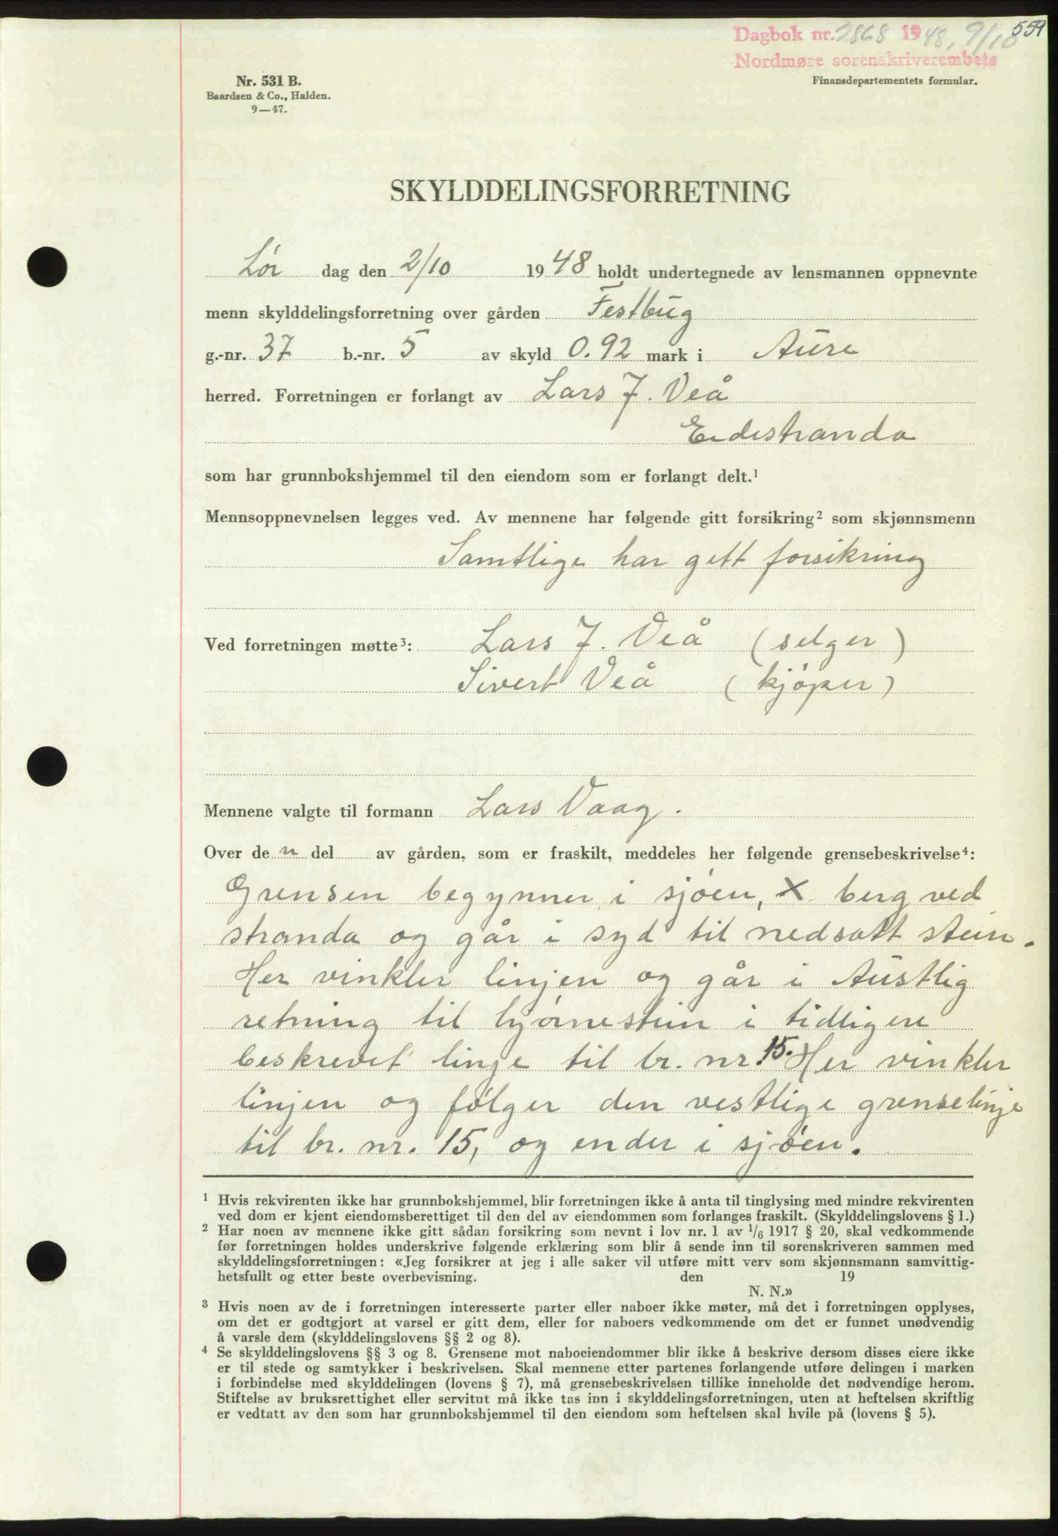 559
Dagbok nr. 2868 1948, 9/10
Nordmøre sorenskriverembete
Nr. 531 B.
Baardsen & Co., Halden.
9—47.
Finansdepartementets formular.
SKYLDDELINGSFORRETNING
Lör dag den 2/10 1948 holdt undertegnede av lensmannen oppnevnte
menn skylddelingsforretning over gården Festbug
g.-nr. 37 b.-nr. 5 av skyld 0.92 mark i Aure
herred. Forretningen er forlangt av Lars J. Veå
Eidestranda
som har grunnbokshjemmel til den eiendom som er forlangt delt.¹
Mennsoppnevnelsen legges ved. Av mennene har følgende gitt forsikring² som skjønnsmenn
Samtlige har gett forsikring
Ved forretningen møtte³: Lars J. Veå (selger)
Sivert Veå (kjöper)
Mennene valgte til formann Lars Vaag.
Over de n del av gården, som er fraskilt, meddeles her følgende grensebeskrivelse⁴:
Grensen begynner i sjöen, X berg ved
stranda og går i syd til nedsatt stein.
Her vinkler linjen og går i Austlig
retning til hjörnestein i tidligere
beskrevet linje til br. nr. 15. Her vinkler
linjen og fölger den vestlige grenselinje
til br. nr. 15, og ender i sjöen.
¹ Hvis rekvirenten ikke har grunnbokshjemmel, blir forretningen ikke å anta til tinglysing med mindre rekvirenten
ved dom er kjent eiendomsberettiget til den del av eiendommen som forlanges fraskilt. (Skylddelingslovens § 1.)
² Har noen av mennene ikke gitt sådan forsikring som nevnt i lov nr. 1 av 1/6 1917 § 20, skal vedkommende
før forretningen holdes underskrive følgende erklæring som blir å sende inn til sorenskriveren sammen med
skylddelingsforretningen: «Jeg forsikrer at jeg i alle saker vil utføre mitt verv som skjønnsmann samvittig-
hetsfullt og etter beste overbevisning. den 19
N. N.»
³ Hvis noen av de i forretningen interesserte parter eller naboer ikke møter, må det i forretningen opplyses,
om det er godtgjort at varsel er gitt dem, eller for naboers vedkommende om det er funnet unødvendig
å varsle dem (skylddelingslovens §§ 2 og 8).
⁴ Se skylddelingslovens §§ 3 og 8. Grensene mot naboeiendommer blir ikke å beskrive dersom disses eiere ikke
er til stede og samtykker i beskrivelsen. Skal mennene etter partenes forlangende utføre delingen i marken
i forbindelse med skylddelingen (lovens § 7), må grensebeskrivelsen tillike inneholde det nødvendige herom.
Stiftelse av bruksrettighet eller servitut må ikke tas inn i skylddelingsforretningen, uten at heftelsen skriftlig
er vedtatt av den som har grunnbokshjemmel til den eiendom som heftelsen skal hvile på (lovens § 5).